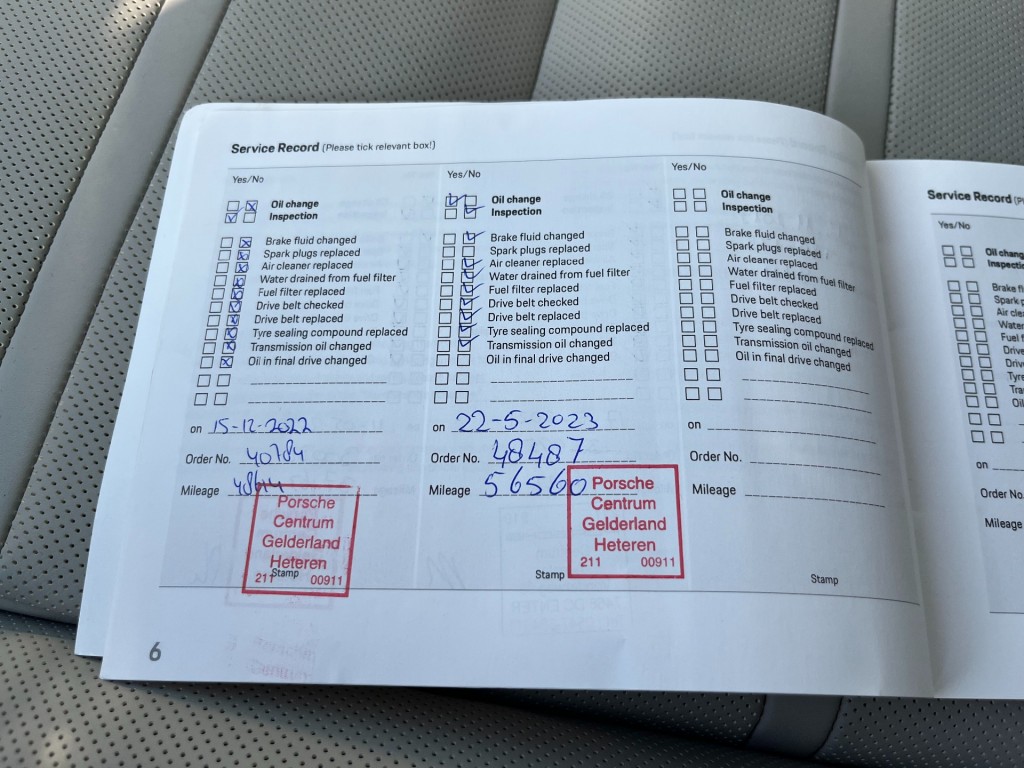 Service Record (Please tick relevant box!)
Yes/No
Oil change
Inspection
Brake fluid changed
Spark plugs replaced
Air cleaner replaced
Water drained from fuel filter
Fuel filter replaced
Drive belt checked
Drive belt replaced
Tyre sealing compound replaced
Transmission oil changed
Oil in final drive changed
on 15-12-2022
Order No. 40784
Mileage
Porsche
Centrum
Gelderland
Heteren
211 00911
Stamp
Yes/No
Oil change
Inspection
Brake fluid changed
Spark plugs replaced
Air cleaner replaced
Water drained from fuel filter
Fuel filter replaced
Drive belt checked
Drive belt replaced
Tyre sealing compound replaced
Transmission oil changed
Oil in final drive changed
on 22-5-2023
Order No. 48487
Mileage 56560
Porsche
Centrum
Gelderland
Heteren
211 00911
Stamp
Yes/No
Oil change
Inspection
Brake fluid changed
Spark plugs replaced
Air cleaner replaced
Water drained from fuel filter
Fuel filter replaced
Drive belt checked
Drive belt replaced
Tyre sealing compound replaced
Transmission oil changed
Oil in final drive changed
on
Order No.
Mileage
Stamp
6
Service Record
Yes/No
Oil chang
Inspectio
Brake fl
Spark p
Air clea
Water
Fuel f
Drive
Drive
Tyre
Tra
Oil
on
Order No.
Mileage